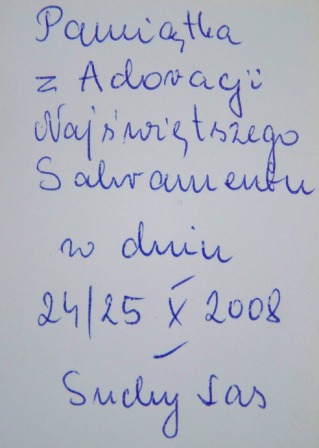 Pamiątka
z Adoracji
Najświętszego
Sakramentu
w dniu
24/25 X 2008
Suchy Las